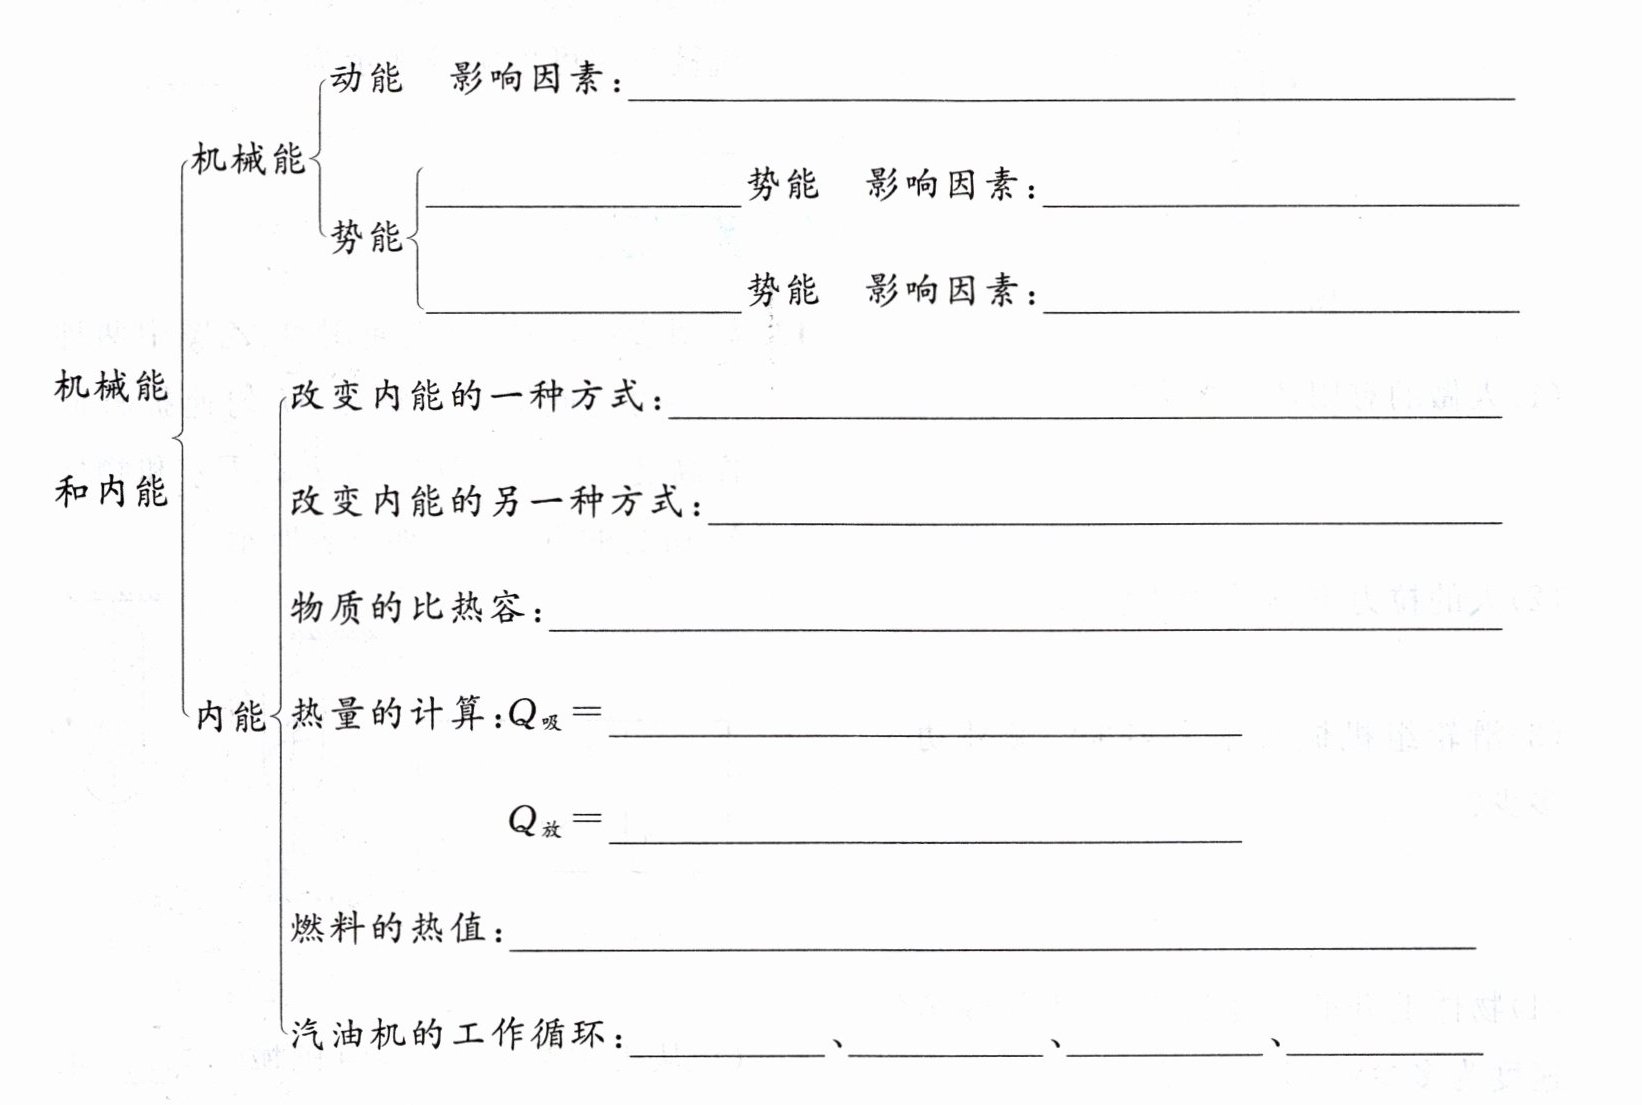 动能 影响因素:
机械能
势能 影响因素:
势能
势能 影响因素:
机械能
和内能
改变内能的一种方式:
改变内能的另一种方式:
物质的比热容:
内能
热量的计算:Q吸=
Q放=
燃料的热值:
汽油机的工作循环: 、 、 、